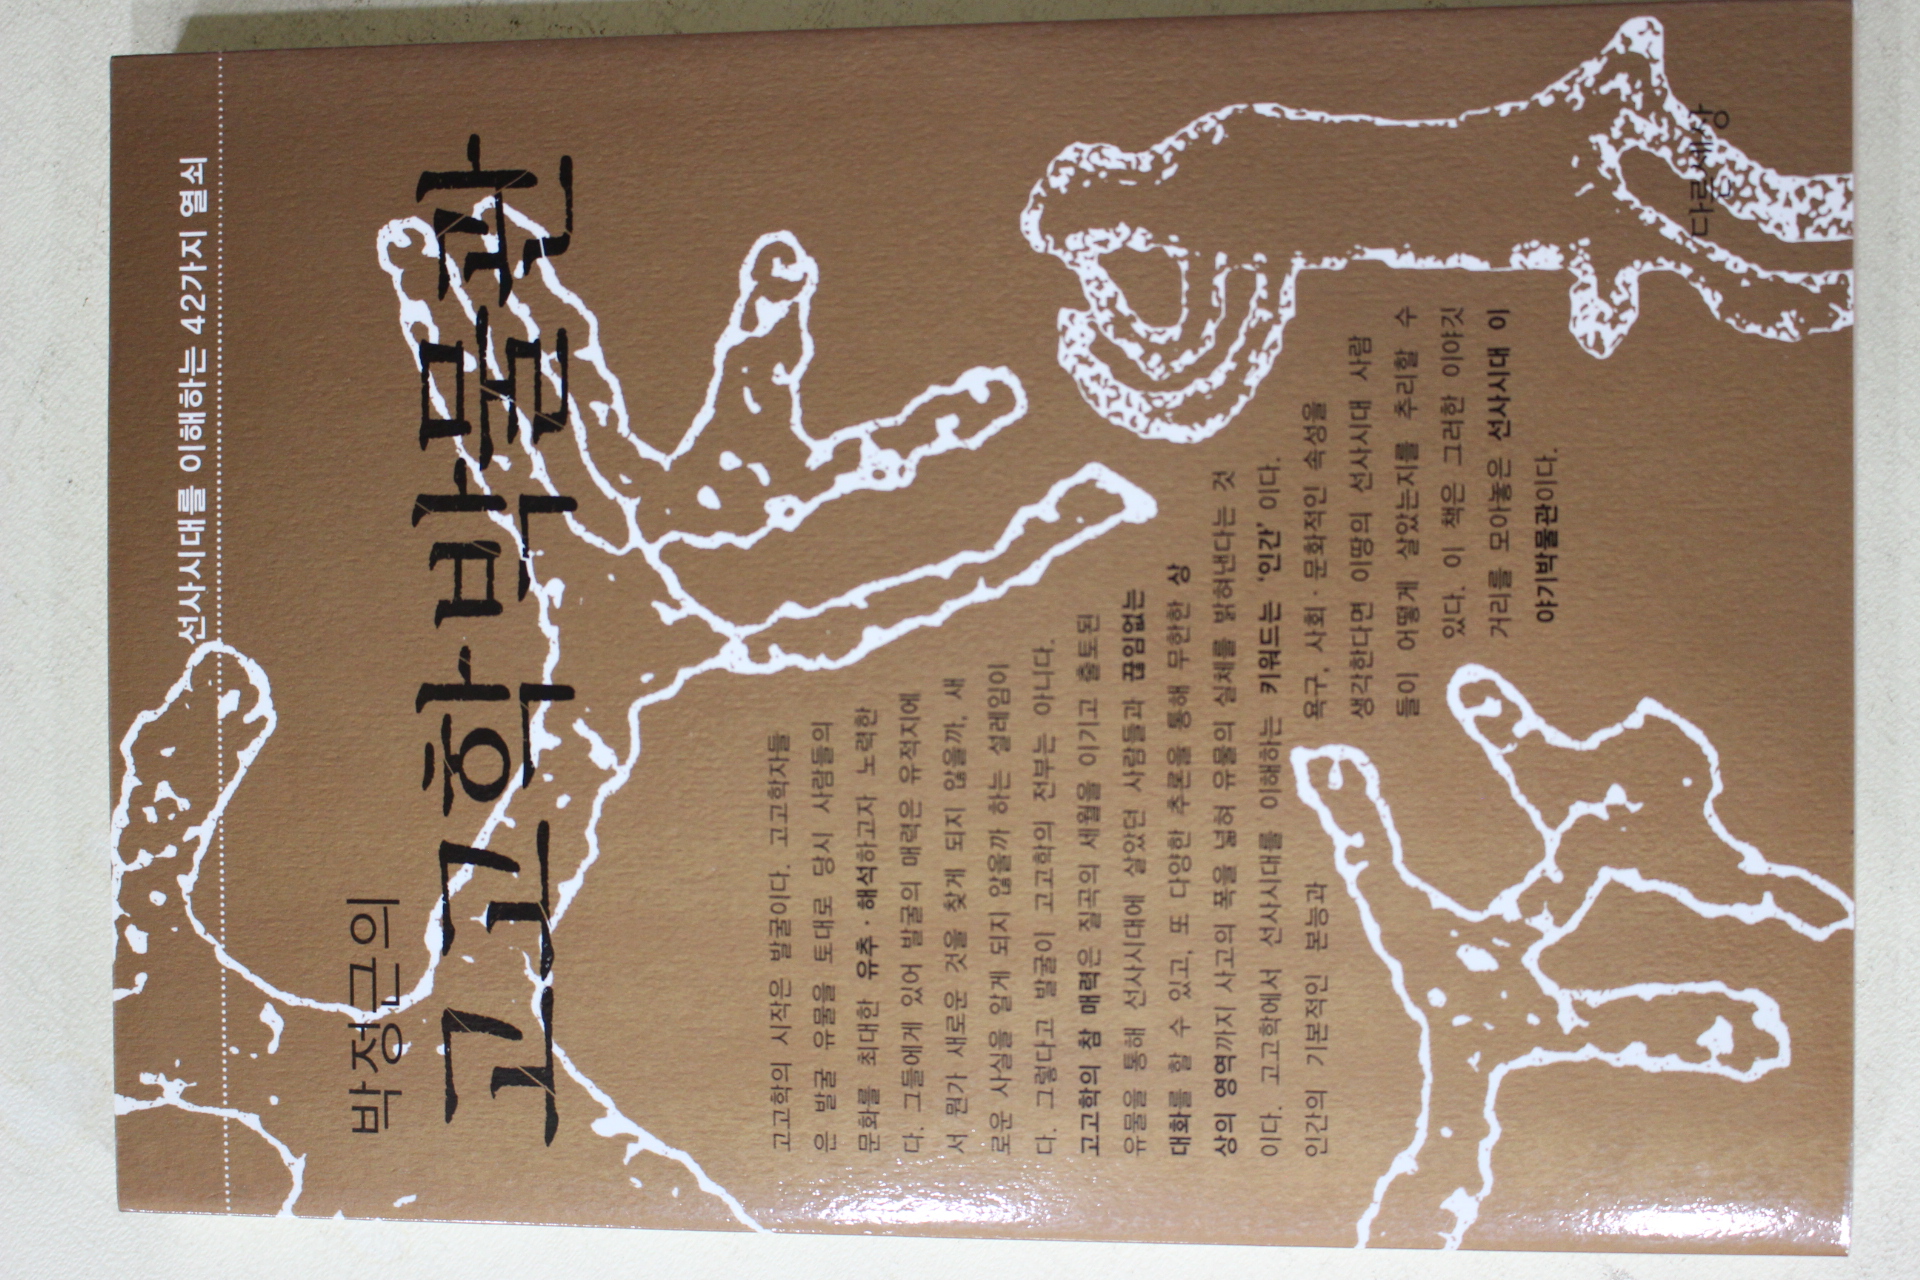 선사시대를 이해하는 42가지 열쇠
박정근의
고고학 박물관
고고학의 시작은 발굴이다. 고고학자들
은 발굴 유물을 토대로 당시 사람들의
문화를 최대한 유추·해석하고자 노력한
다. 그들에게 있어 발굴의 매력은 유적지에
서 뭔가 새로운 것을 찾게 되지 않을까, 새
로운 사실을 알게 되지 않을까 하는 설레임이
다. 그렇다고 발굴이 고고학의 전부는 아니다.
고고학의 참 매력은 질곡의 세월을 이기고 출토된
유물을 통해 선사시대에 살았던 사람들과 끊임없는
대화를 할 수 있고, 또 다양한 추론을 통해 무한한 상
상의 영역까지 사고의 폭을 넓혀 유물의 실체를 밝혀낸다는 것
이다. 고고학에서 선사시대를 이해하는 키워드는 '인간' 이다.
인간의 기본적인 본능과 욕구, 사회·문화적인 속성을
생각한다면 이땅의 선사시대 사람
들이 어떻게 살았는지를 추리할 수
있다. 이 책은 그러한 이야깃
거리를 모아놓은 선사시대 이
야기박물관이다.
다른세상